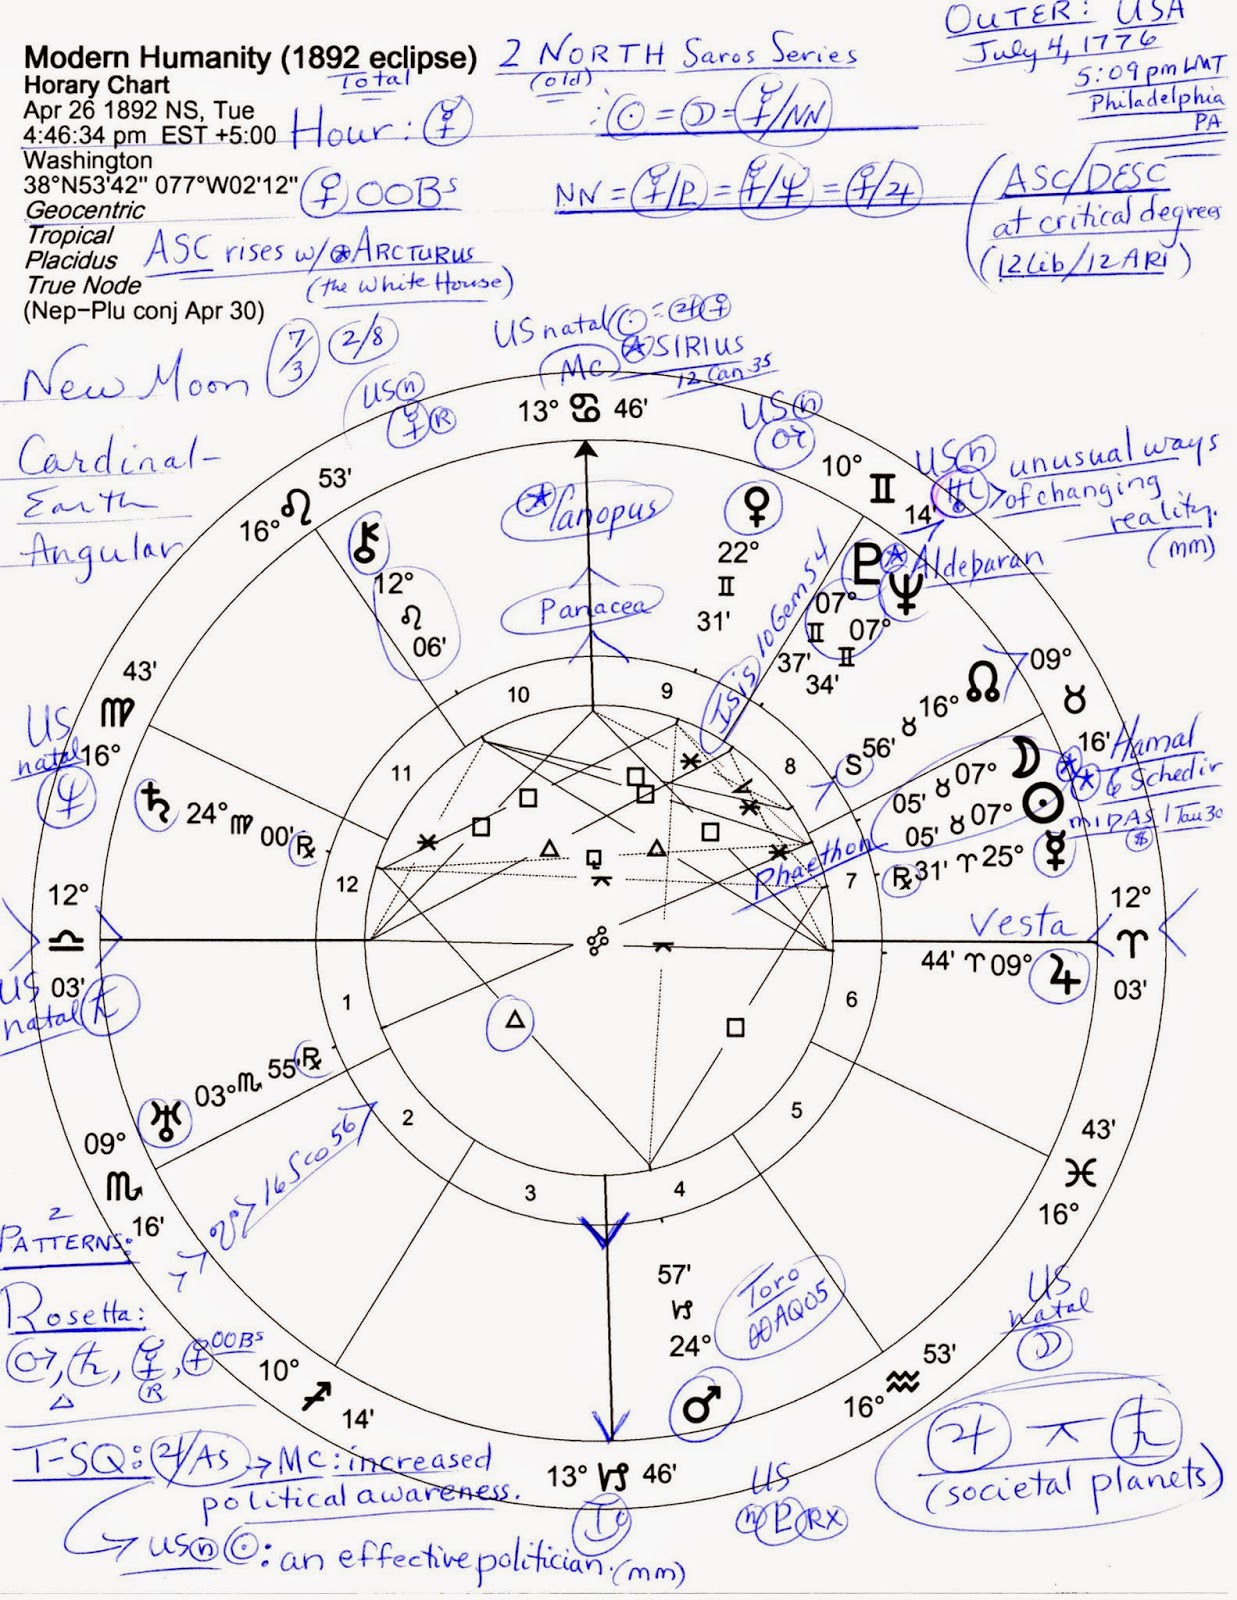 Modern Humanity (1892 eclipse)
Total
2 NORTH Saros Series
(old)
OUTER: USA
July 4, 1776
5:09 pm LMT
Philadelphia
PA
Horary Chart
Apr 26 1892 NS, Tue
4:46:34 pm EST +5:00
Hour: ☿
: ☉ = ☽ = ☿/NN
Washington
38°N53'42" 077°W02'12"
♀ OOBs
NN = ☿/P = ☿/♆ = ☿/♃
(ASC/DESC
at critical degrees
(12 Lib/12 ARI)
Geocentric
Tropical
Placidus
True Node
(Nep-Plu conj Apr 30)
ASC rises w/ ✪ ARCTURUS
(the White House)
New Moon
7/3
2/8
US natal ☉ = ♃♀
Mc
✪ SIRIUS
12 Can 35
Cardinal-
Earth
Angular
US n
☿ R
13° ♋ 46'
US n
♂
10° ♊ 14'
US n
♅ > unusual ways
of changing
reality.
(mm)
16° ♌ 53'
⚷
12°
♌
06'
✪ Canopus
Panacea
♀
22°
♊
31'
Isis 10 Gem 54
♇
07°
♊
37'
✪ Aldebaran
♆
07°
♊
34'
☊ 16° ♉ 56' S
09°
♉
16'
43'
♍
16°
US
natal
♆
♄ 24° ♍ 00' ℞
☽ 07° ♉ 05'
☉ 07° ♉ 05'
☿ 25° ♈ 31' ℞
Hamal
Schedir
MIDAS 1 Tau 30
$
Phaethon
12°
♎
03'
US
natal ♄
Vesta
12°
♈
03'
♃ 09° ♈ 44'
10
9
11
8
12
7
1
6
2
5
3
4
♅ 03° ♏ 55' ℞
09°
♏
16'
☋ > 16 Sco 56
43'
♓
16°
2
PATTERNS:
Rosetta:
♂, ♄, ☿, ♀ OOBs
△
R
10° ♐ 14'
57'
♑
24°
♂
Toro
00 AQ 05
US
natal
☽
16° ♒ 53'
T-SQ: ♃/As → Mc: increased
political awareness.
→ US n ☉: an effective politician. (mm)
13° ♑ 46'
Ic
US
n P RX
♃ ⚻ ♄
(societal planets)